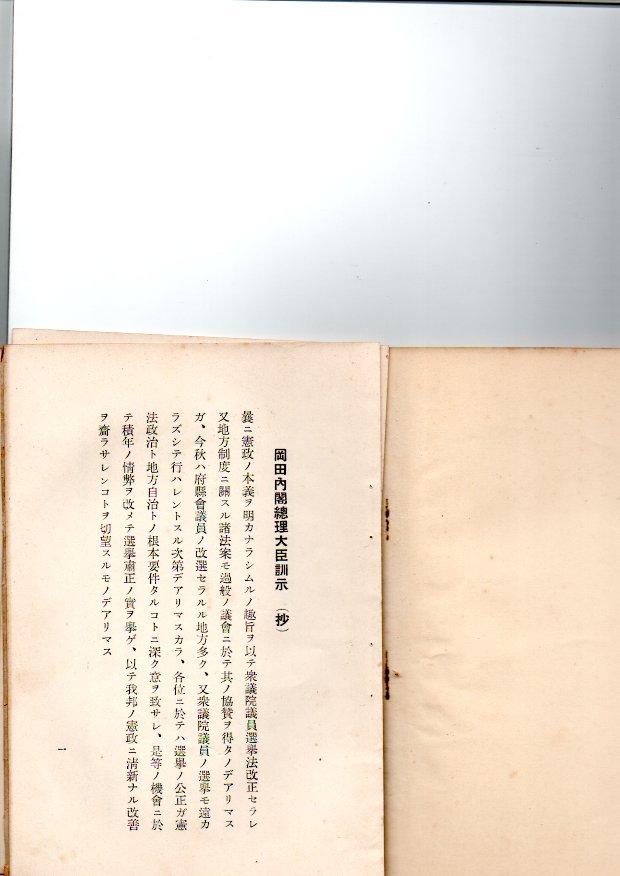 岡田內閣總理大臣訓示 (抄)
曩ニ憲政ノ本義ヲ明カナラシムルノ趣旨ヲ以テ衆議院議員選擧法改正セラレ
又地方制度ニ關スル諸法案モ過般ノ議會ニ於テ其ノ協贊ヲ得タノデアリマス
ガ、今秋ハ府縣會議員ノ改選セラルル地方多ク、又衆議院議員ノ選擧モ遠カ
ラズシテ行ハレントスル次第デアリマスカラ、各位ニ於テハ選擧ノ公正ガ憲
法政治ト地方自治トノ根本要件タルコトニ深ク意ヲ致サレ、是等ノ機會ニ於
テ積年ノ情弊ヲ改メテ選擧肅正ノ實ヲ擧ゲ、以テ我邦ノ憲政ニ清新ナル改善
ヲ齎ラサレンコトヲ切望スルモノデアリマス
一